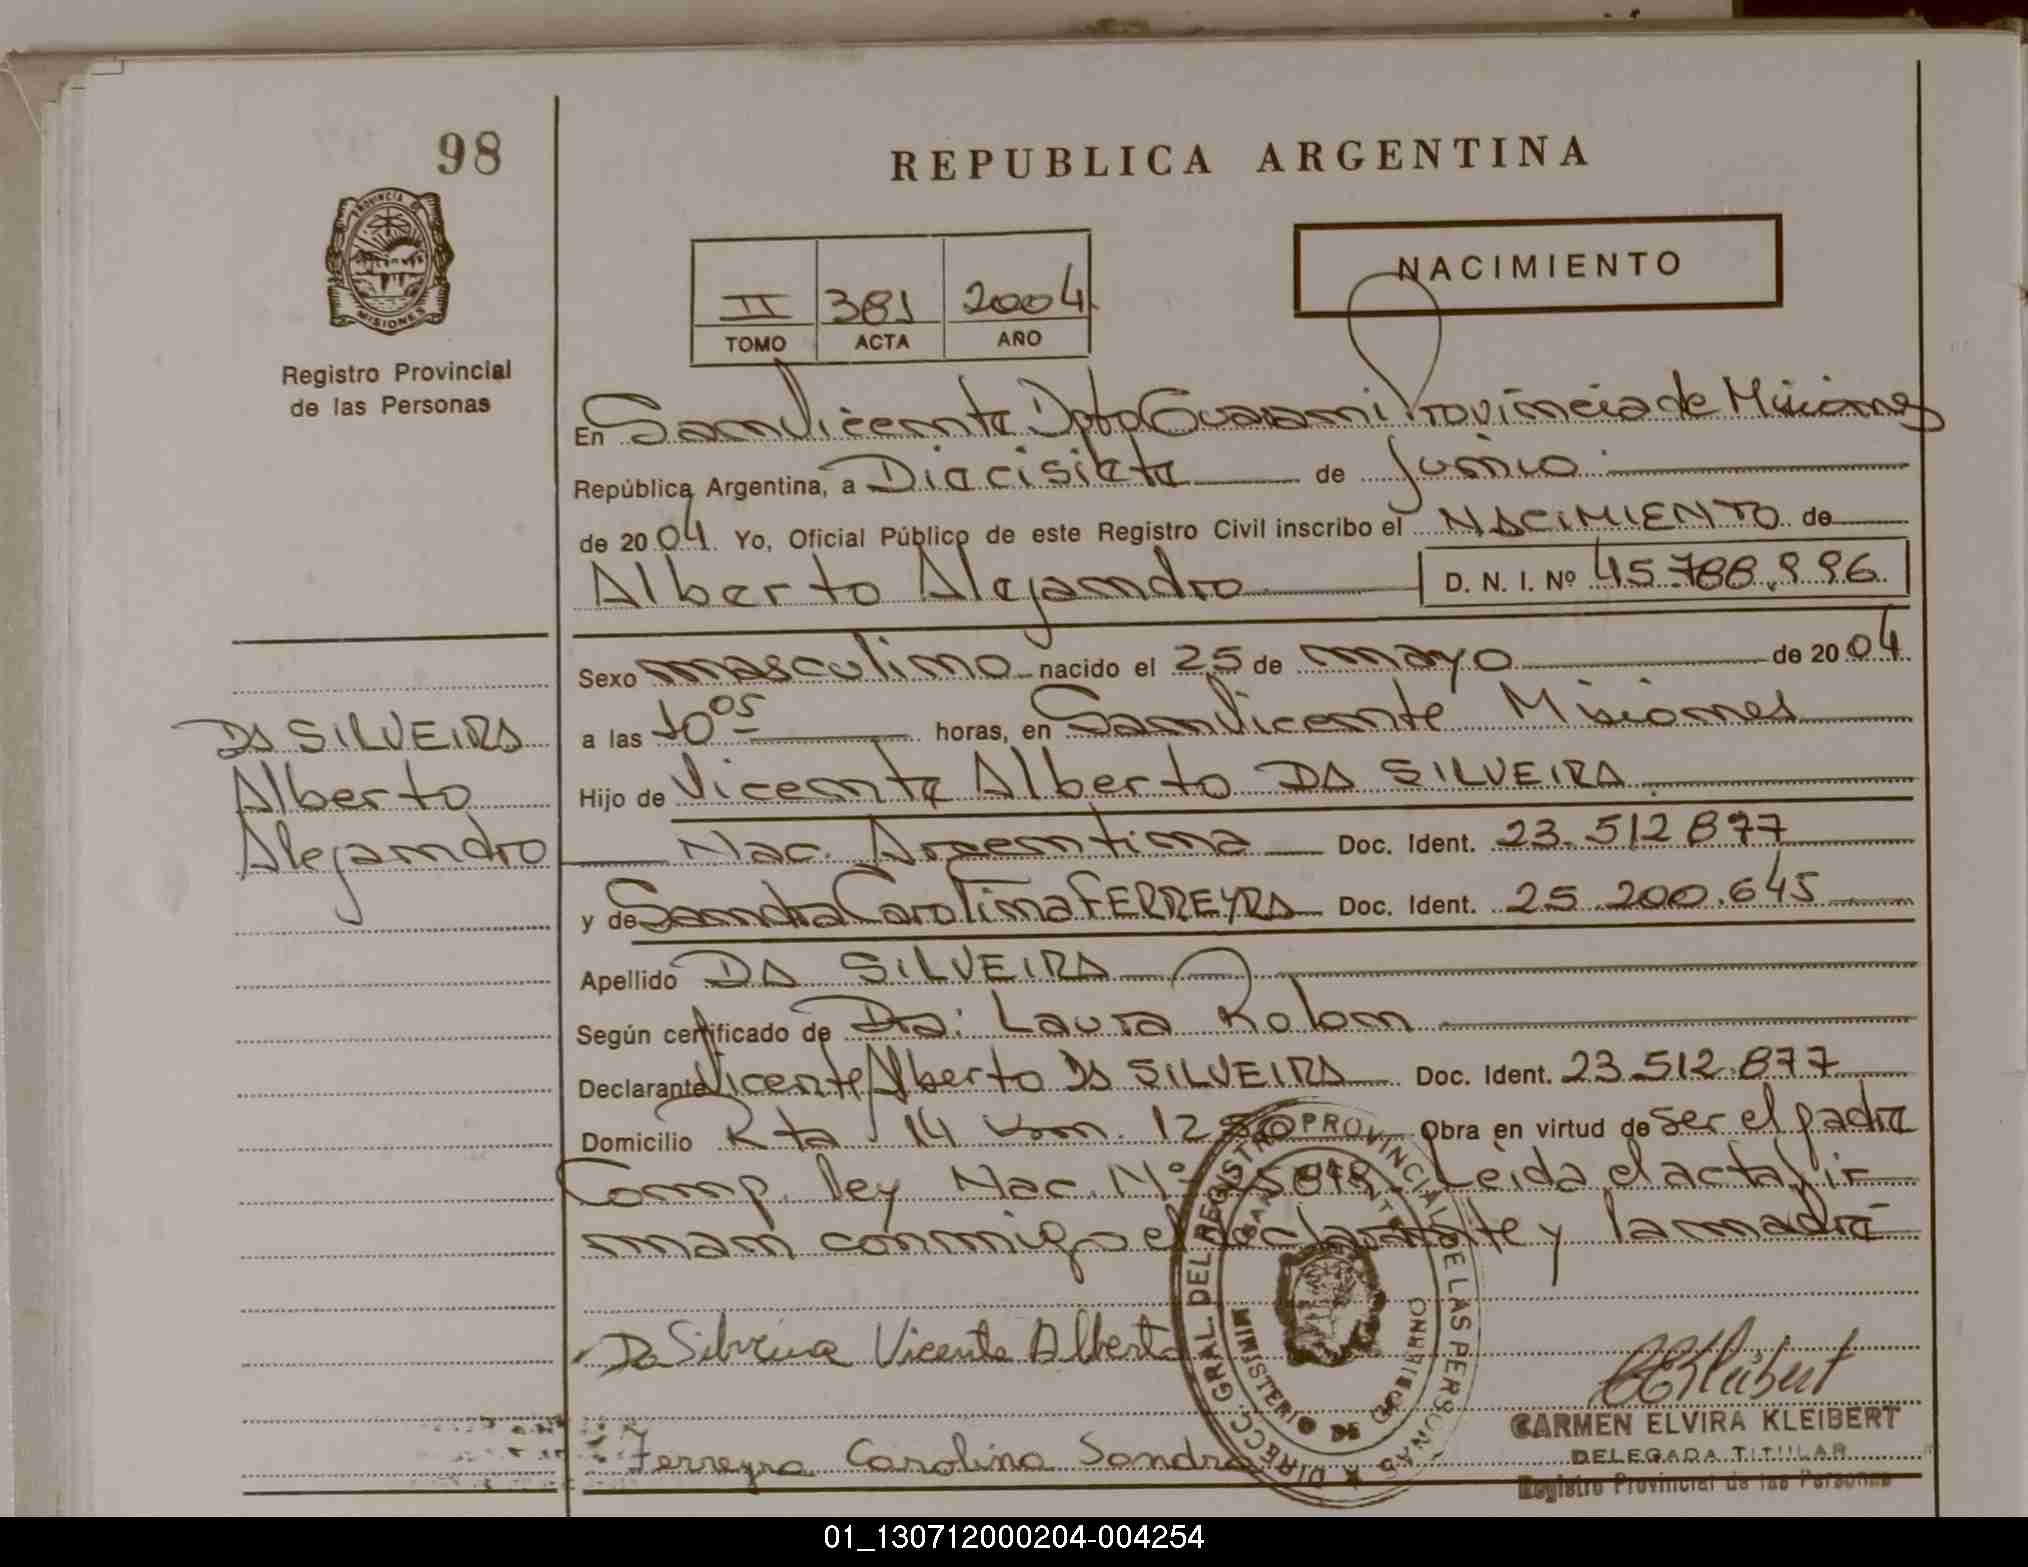 98
REPUBLICA ARGENTINA
PROVINCIA DE
MISIONES
Registro Provincial
de las Personas
II 381 2004
TOMO ACTA AÑO
NACIMIENTO
En San Vicente Dpto Guarani Provincia de Misiones
República Argentina, a Diecisiete de Junio
de 2004 Yo, Oficial Público de este Registro Civil inscribo el NACIMIENTO de
Alberto Alejandro D. N. I. Nº 45.788.996
Sexo masculino nacido el 25 de mayo de 2004
a las 10 05 horas, en San Vicente Misiones
Hijo de Vicente Alberto DA SILVEIRA
Nac. Argentina Doc. Ident. 23.512 877
y de Sandra Carolina FERREYRA Doc. Ident. 25.200.645
Apellido DA SILVEIRA
Según certificado de Dra: Laura Rolon
Declarante Vicente Alberto DA SILVEIRA Doc. Ident. 23.512.877
Domicilio Rta 14 Km. 1280 Obra en virtud de ser el padre
Comp. ley Nac. Nº Leida el acta fir
man conmigo el declarante y la madre
DA SILVEIRA
Alberto
Alejandro
Da Silveira Vicente Alberto
Ferreyra Carolina Sandra
DIRECC. GRAL. DEL REGISTRO PROVINCIAL DE LAS PERSONAS
MINISTERIO DE GOBIERNO
CARMEN ELVIRA KLEIBERT
DELEGADA TITULAR
Registro Provincial de las Personas
01_130712000204-004254